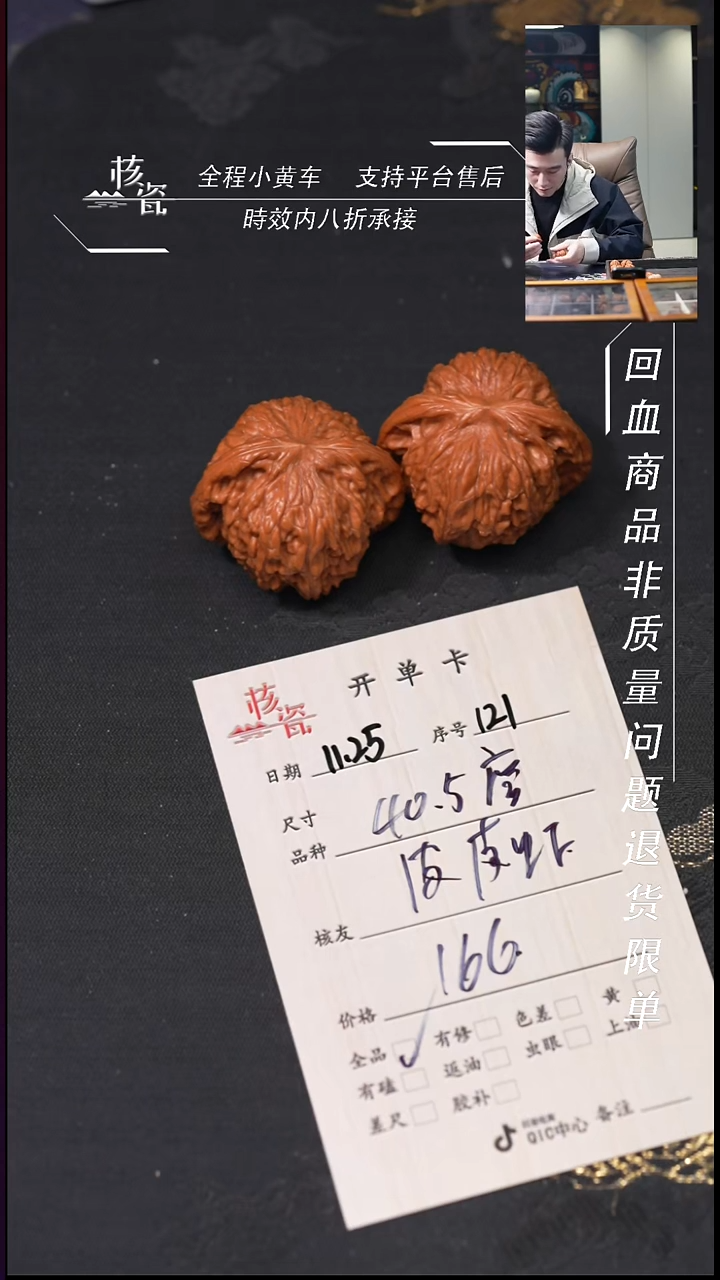 核瓷
全程小黄车 支持平台售后
時效内八折承接
回血商品非质量问题退货限单
核瓷
开单卡
日期 11.25 序号 121
尺寸 40.5座
品种 皮皮虾
核友
价格 166.
全品 有修 色差 黄
有磕 返油 虫眼 上油
差尺 胶补
QIC中心 备注